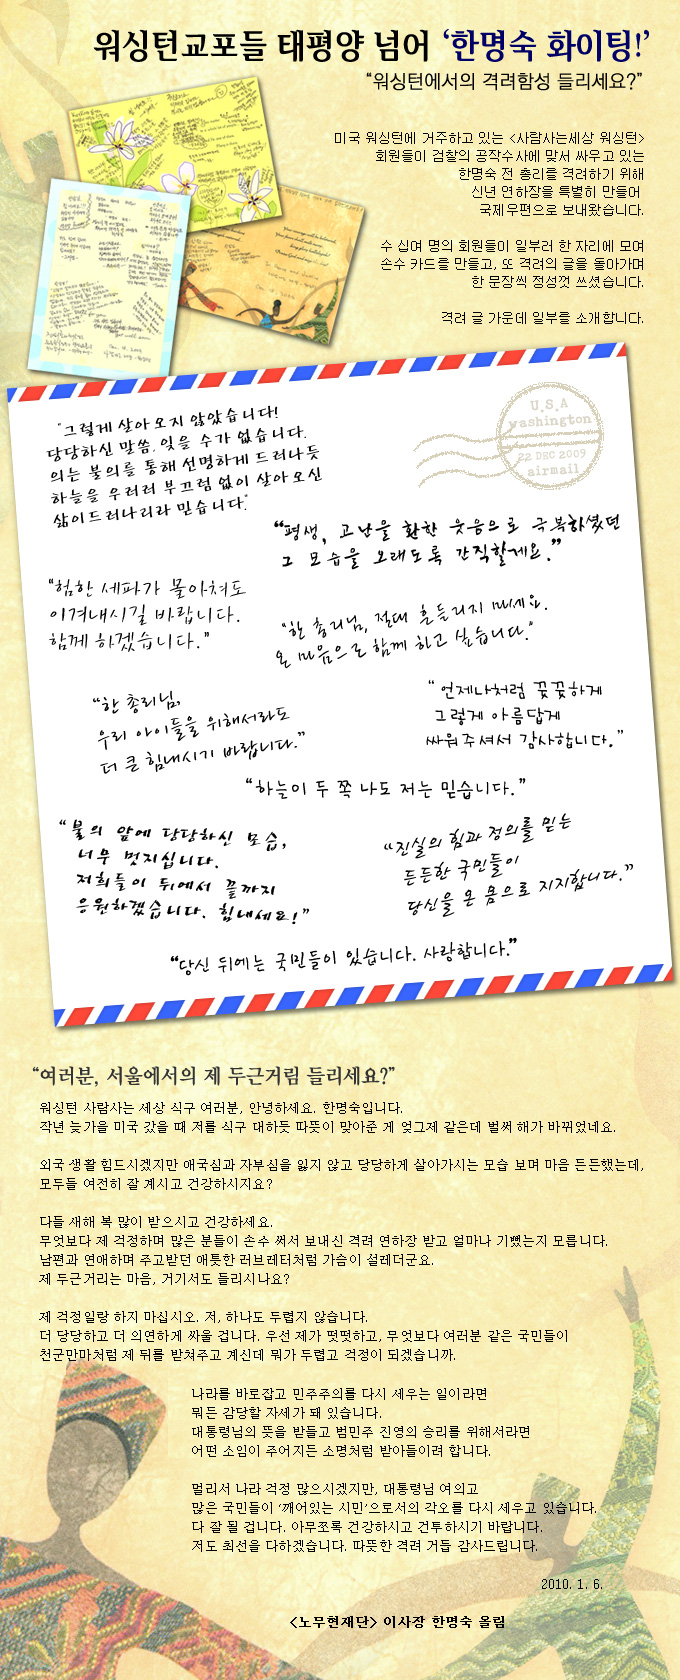 워싱턴교포들 태평양 넘어 ‘한명숙 화이팅!’
“워싱턴에서의 격려함성 들리세요?”
미국 워싱턴에 거주하고 있는 <사람사는세상 워싱턴>
회원들이 검찰의 공작수사에 맞서 싸우고 있는
한명숙 전 총리를 격려하기 위해
신년 연하장을 특별히 만들어
국제우편으로 보내왔습니다.
수 십여 명의 회원들이 일부러 한 자리에 모여
손수 카드를 만들고, 또 격려의 글을 돌아가며
한 문장씩 정성껏 쓰셨습니다.
격려 글 가운데 일부를 소개합니다.
U.S.A
washington
22 DEC 2009
airmail
“그렇게 살아오지 않았습니다!
당당하신 말씀, 잊을 수가 없습니다.
의는 불의를 통해 선명하게 드러나듯
하늘을 우러러 부끄럼 없이 살아오신
삶이 드러나리라 믿습니다.”
“평생, 고난을 환한 웃음으로 극복하셨던
그 모습을 오래도록 간직할게요.”
“험한 세파가 몰아쳐도
이겨내시길 바랍니다.
함께 하겠습니다.”
“한 총리님, 절대 흔들리지 마세요.
온 마음으로 함께 하고 싶습니다.”
“한 총리님,
우리 아이들을 위해서라도
더 큰 힘내시기 바랍니다.”
“언제나처럼 꿋꿋하게
그렇게 아름답게
싸워주셔서 감사합니다.”
“하늘이 두 쪽 나도 저는 믿습니다.”
“불의 앞에 당당하신 모습,
너무 멋지십니다.
저희들이 뒤에서 끝까지
응원하겠습니다. 힘내세요!”
“진실의 힘과 정의를 믿는
든든한 국민들이
당신을 온 몸으로 지지합니다.”
“당신 뒤에는 국민들이 있습니다. 사랑합니다.”
“여러분, 서울에서의 제 두근거림 들리세요?”
워싱턴 사람사는 세상 식구 여러분, 안녕하세요. 한명숙입니다.
작년 늦가을 미국 갔을 때 저를 식구 대하듯 따뜻이 맞아준 게 엊그제 같은데 벌써 해가 바뀌었네요.
외국 생활 힘드시겠지만 애국심과 자부심을 잃지 않고 당당하게 살아가시는 모습 보며 마음 든든했는데,
모두들 여전히 잘 계시고 건강하시지요?
다들 새해 복 많이 받으시고 건강하세요.
무엇보다 제 걱정하며 많은 분들이 손수 써서 보내신 격려 연하장 받고 얼마나 기뻤는지 모릅니다.
남편과 연애하며 주고받던 애틋한 러브레터처럼 가슴이 설레더군요.
제 두근거리는 마음, 거기서도 들리시나요?
제 걱정일랑 하지 마십시오. 저, 하나도 두렵지 않습니다.
더 당당하고 더 의연하게 싸울 겁니다. 우선 제가 떳떳하고, 무엇보다 여러분 같은 국민들이
천군만마처럼 제 뒤를 받쳐주고 계신데 뭐가 두렵고 걱정이 되겠습니까.
나라를 바로잡고 민주주의를 다시 세우는 일이라면
뭐든 감당할 자세가 돼 있습니다.
대통령님의 뜻을 받들고 범민주 진영의 승리를 위해서라면
어떤 소임이 주어지든 소명처럼 받아들이려 합니다.
멀리서 나라 걱정 많으시겠지만, 대통령님 여의고
많은 국민들이 ‘깨어있는 시민’으로서의 각오를 다시 세우고 있습니다.
다 잘 될 겁니다. 아무쪼록 건강하시고 건투하시기 바랍니다.
저도 최선을 다하겠습니다. 따뜻한 격려 거듭 감사드립니다.
2010. 1. 6.
<노무현재단> 이사장 한명숙 올림